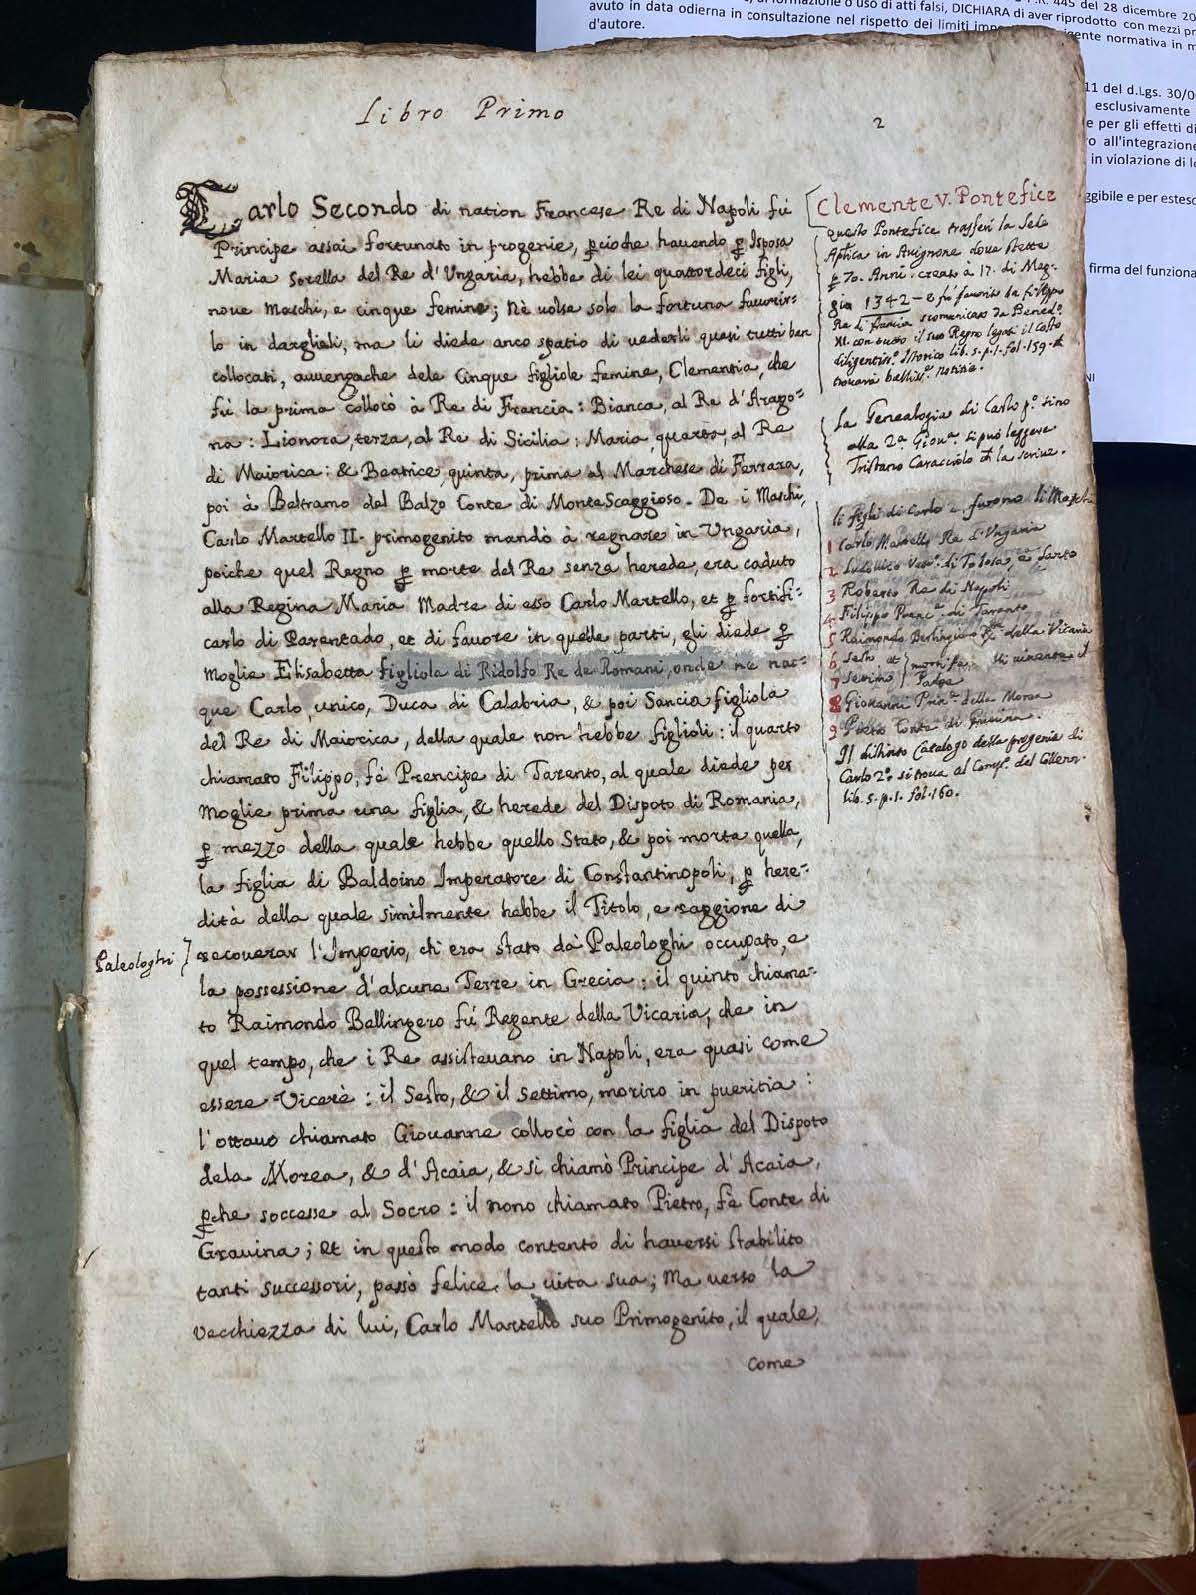 Libro Primo
2
Carlo Secondo di nation Francese Re di Napoli fù
Principe assai fortunato in progenie, ꝑcioche hauendo ꝑ Isposa
Maria sorella del Re d'Ungaria, hebbe di lei quattordeci figli,
noue Maschi, e cinque femine; Nè uolse solo la fortuna fauorir=
lo in darglieli, ma li diede anco spatio di uederli quasi tutti ben
collocati, auuengache dele Cinque figliole femine, Clementia, che
fù la prima collocò à Re di Francia: Bianca, al Re d'Arago=
na: Lionora, terza, al Re di Sicilia: Maria, quarta, al Re
di Maiorica: & Beatrice, quinta, prima al Marchese di Ferrara,
poi à Beltramo del Balzo Conte di MonteScaggioso. De i Maschi,
Carlo Martello II. primogenito mandò à regnare in Ungaria,
poiche quel Regno ꝑ morte del Re senza herede, era caduto
alla Regina Maria Madre di esso Carlo Martello, et ꝑ fortifi=
carlo di Parentado, et di fauore in quelle parti, gli diede ꝑ
moglie Elisabetta figliola di Ridolfo Re de Romani, onde ne nac=
que Carlo, unico, Duca di Calabria, & poi Sancia figliola
del Re di Maiorica, della quale non hebbe figlioli: il quarto
chiamato Filippo, fè Prencipe di Taranto, al quale diede per
Moglie prima una figlia, & herede del Dispoto di Romania,
ꝑ mezzo della quale hebbe quello Stato, & poi morta quella,
la figlia di Baldoino Imperatore di Constantinopoli, ꝑ here=
dità della quale similmente hebbe il Titolo, e raggione di
Paleologhi
recouerar l'Imperio, ch'era stato da Paleologhi occupato, e
la possessione d'alcune Terre in Grecia: il quinto chiama=
to Raimondo Bellingero fù Regente della Vicaria, che in
quel tempo, che i Re assisteuano in Napoli, era quasi come
essere Vicerè: il Sesto, & il settimo, moriro in pueritia:
l'ottauo chiamato Giouanne collocò con la figlia del Dispoto
dela Morea, & d'Acaia, & si chiamò Principe d'Acaia,
ꝑche soccesse al Socro: il nono chiamato Pietro, fè Conte di
Grauina; et in questo modo contento di hauersi stabilito
tanti successori, passò felice la uita sua; Ma uerso la
vecchiezza di lui, Carlo Martello suo Primogenito, il quale,
come
Clemente V. Pontefice
questo Pontefice trasferì la Sede
Apᵗica in Auignone doue stette
ꝑ 70. Anni. creato à 17. di Mag=
gio 1342 - e fù fauorito da Filippo
Re di francia scomunicato da Bened.º
XI. con tutto il suo Regno leggasi il Costo
diligentis.º Istorico lib. 5. p. 1. fol. 159.
trouarà bellis.ª notitia.
La Genealogia di Carlo pº sino
alla 2ª Giouª si può leggere
Tristano Caracciolo che la scriue.
li figli di Carlo 2. furono li Maschi
1 Carlo Martello Re d'Ungaria
2 Ludouico Vescº di Tolosa, e Santo
3 Roberto Re di Napoli
4 Filippo Prencᵉ di Taranto
5 Raimondo Berlingiero della Vicaria
6 Sesto et morti fan. ti uiuente il
7 settimo Padre
8 Giouanni Prinᵉ della Morea
9 Pietro Conte di Grauina.
Il distinto Catalogo della progenie di
Carlo 2º si troua al Compº del Collenº
lib. 5. p. 1. fol. 160.
avuto in data odierna in consultazione nel rispetto dei limiti
d'autore.
11 del d.Lgs.
esclusivamente
e per gli effetti di
all'integrazione
in violazione di
firma del funziona